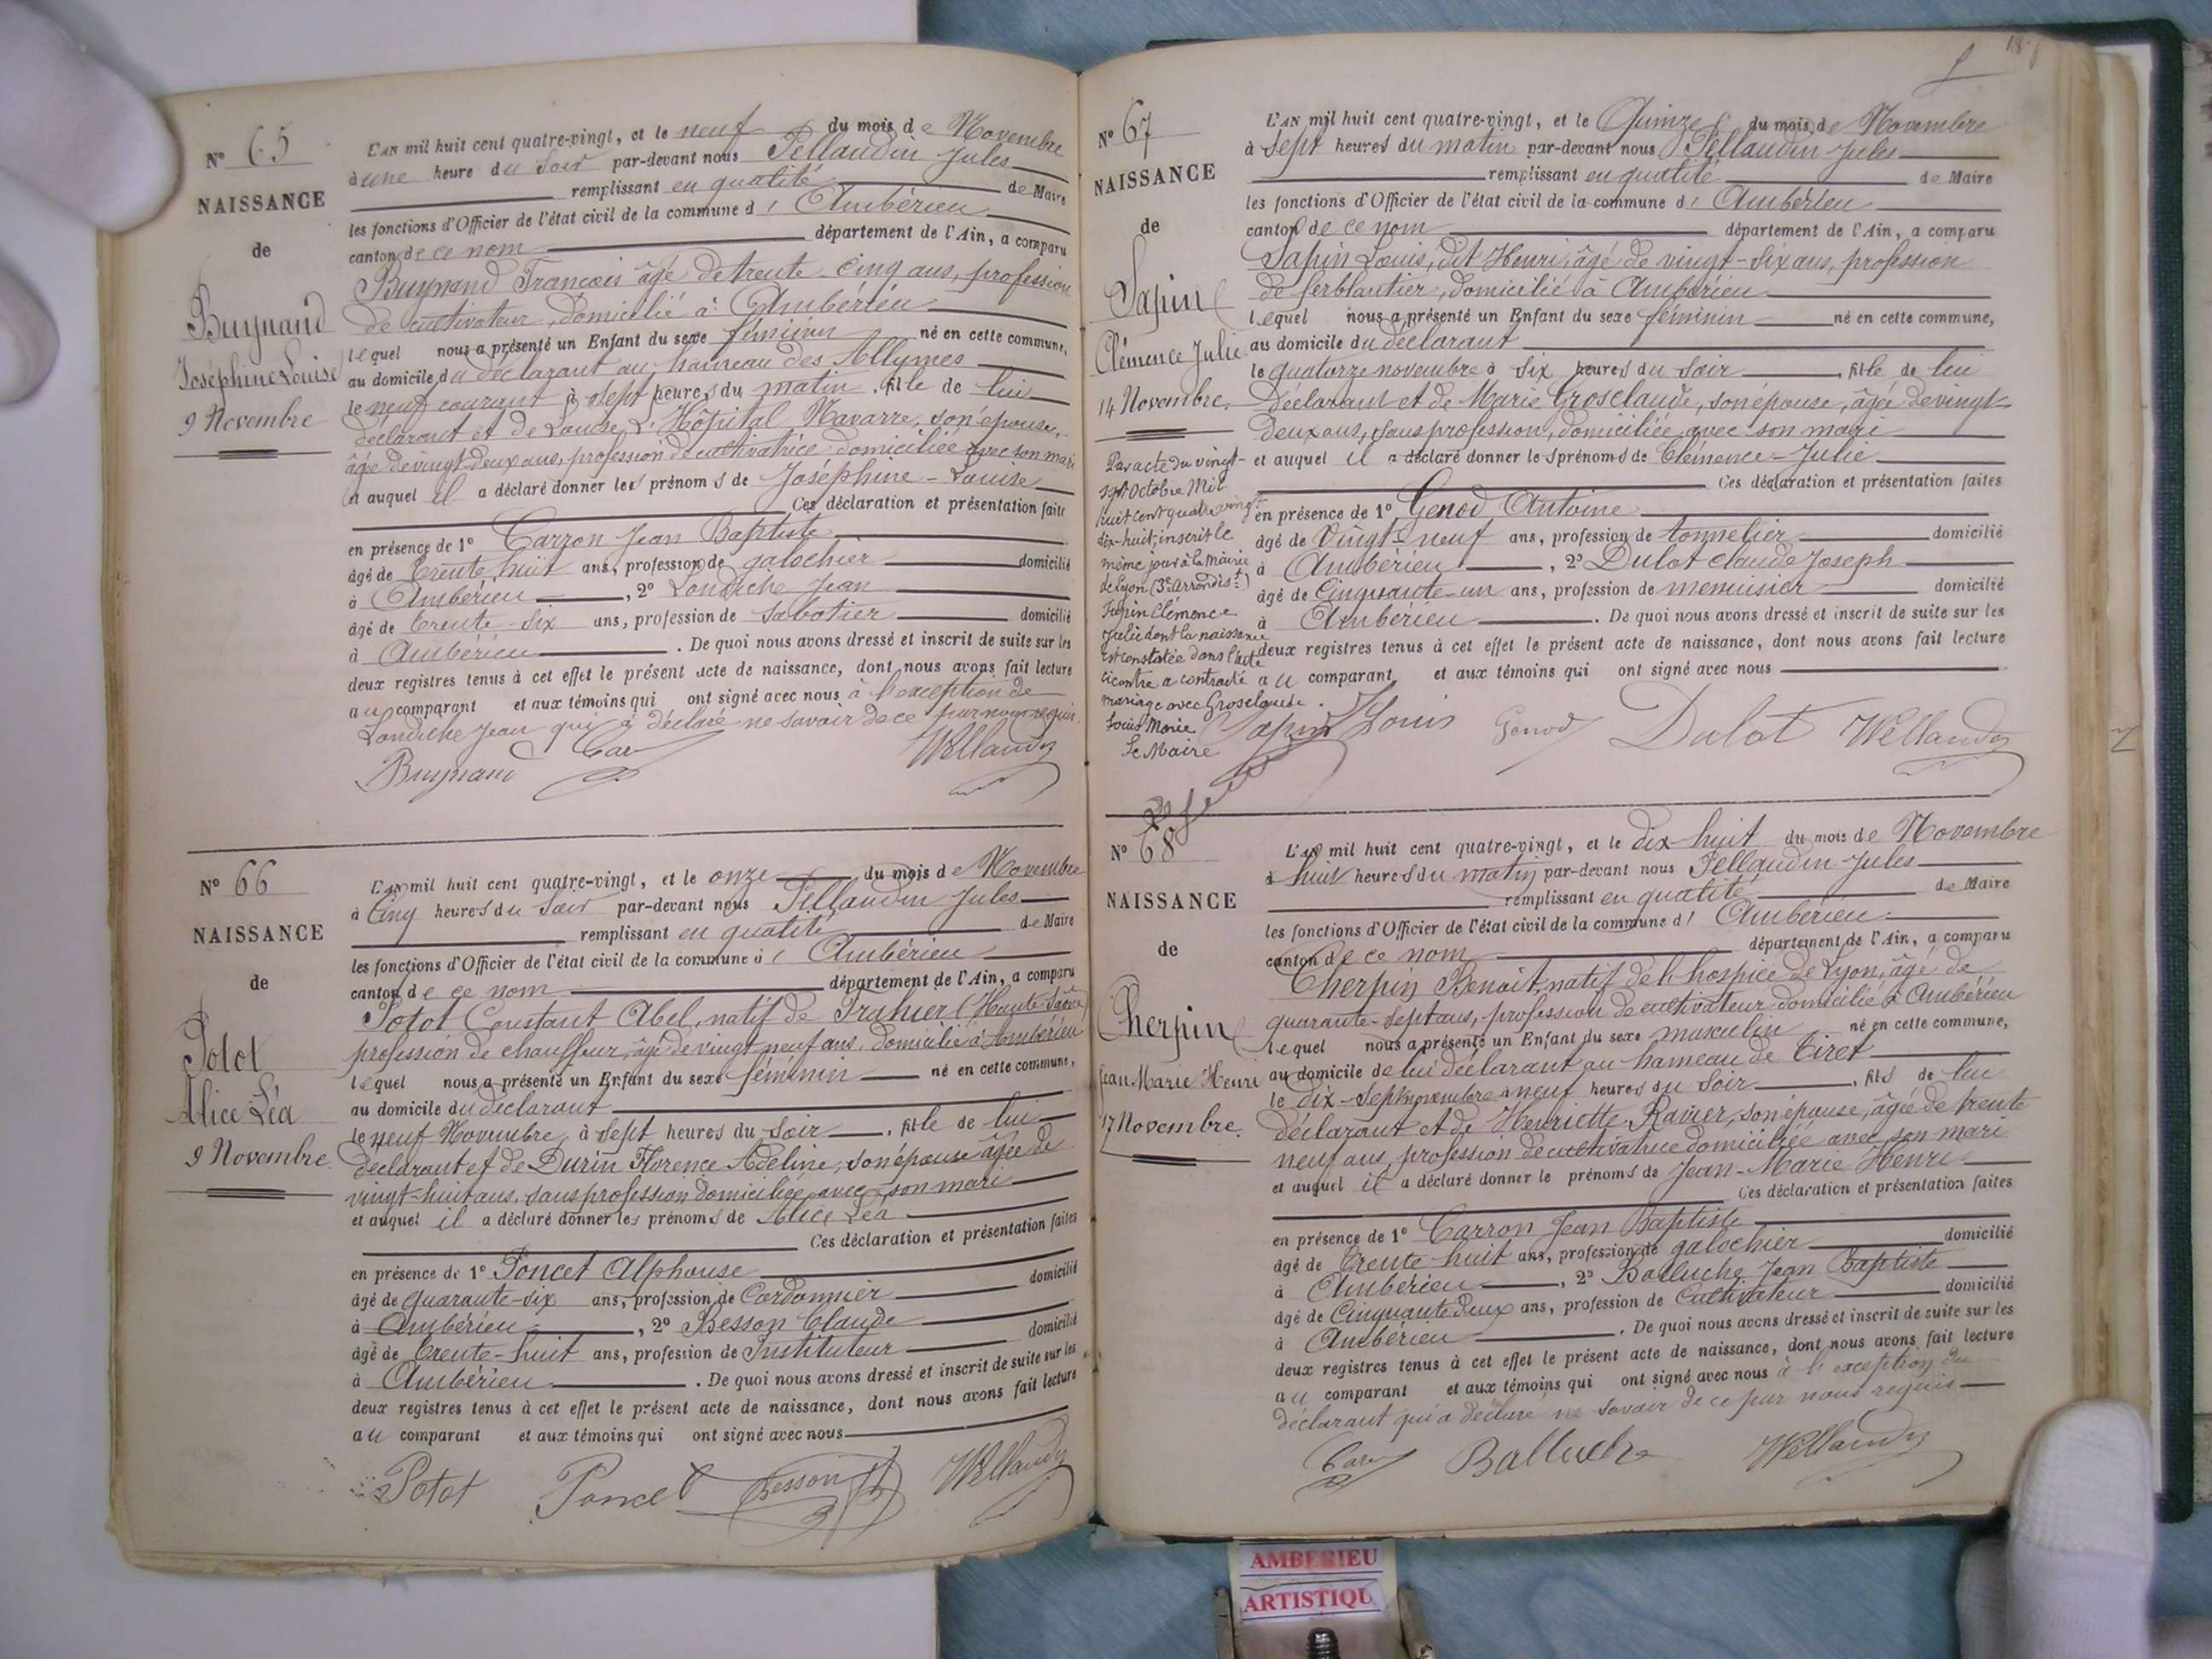 N° 65
NAISSANCE
de
Buynand
Joséphine Louise
9 Novembre
L'AN mil huit cent quatre-vingt, et le neuf du mois de Novembre
à une heure du Soir par-devant nous Pellaudin Jules
remplissant en qualité de Maire
les fonctions d'Officier de l'état civil de la commune d' Ambérieu
canton de ce nom département de l'Ain, a comparu
Buynand François âgé de trente-cinq ans, profession
de cultivateur, domicilié à Ambérieu
lequel nous a présenté un Enfant du sexe féminin né en cette commune,
au domicile du déclarant au hameau des Allymes
le neuf courant à sept heures du matin, fille de lui
déclarant et de Louise L'Hôpital Navarre, son épouse,
âgée de vingt-deux ans, profession de cultivatrice domiciliée avec son mari
et auquel il a déclaré donner les prénoms de Joséphine-Louise
Ces déclaration et présentation faite
en présence de 1° Carron Jean Baptiste
âgé de trente huit ans, profession de galochier domicilié
à Ambérieu, 2° Londiche Jean
âgé de trente-six ans, profession de Sabotier domicilié
à Ambérieu. De quoi nous avons dressé et inscrit de suite sur les
deux registres tenus à cet effet le présent acte de naissance, dont nous avons fait lecture
au comparant et aux témoins qui ont signé avec nous à l'exception de
Londiche Jean qui a déclaré ne savoir de ce par nous requis.
Buynand Car
N° 66
NAISSANCE
de
Potot
Alice Léa
9 Novembre.
L'AN mil huit cent quatre-vingt, et le onze du mois de Novembre
à Cinq heures du Soir par-devant nous Pellaudin Jules
remplissant en qualité de Maire
les fonctions d'Officier de l'état civil de la commune d' Ambérieu
canton de ce nom département de l'Ain, a comparu
Potot Constant Abel, natif de Frahier (Haute-Saône)
profession de chauffeur, âgé de vingt neuf ans, domicilié à Ambérieu
lequel nous a présenté un Enfant du sexe féminin né en cette commune,
au domicile du déclarant
le neuf Novembre, à sept heures du Soir, fille de lui
déclarant et de Durin Florence Adeline, son épouse âgée de
vingt-huit ans, sans profession domiciliée avec son mari
et auquel il a déclaré donner les prénoms de Alice Léa
Ces déclaration et présentation faites
en présence de 1° Poncet Alphonse
âgé de quarante-six ans, profession de Cordonnier domicilié
à Ambérieu, 2° Besson Claude
âgé de trente-huit ans, profession de Instituteur domicilié
à Ambérieu. De quoi nous avons dressé et inscrit de suite sur les
deux registres tenus à cet effet le présent acte de naissance, dont nous avons fait lecture
au comparant et aux témoins qui ont signé avec nous
Potot Poncet Besson
N° 67
NAISSANCE
de
Sapin
Clémence Julie
14 Novembre.
Par acte du vingt-
sept Octobre Mil
huit cent quatre vingt
dix-huit, inscrit le
même jour à la Mairie
de Lyon (3e arrondist)
Sapin Clémence
Julie dont la naissance
est constatée dans l'acte
ci contre a contracté
mariage avec Grosclaude
Louis Marie
Le Maire
L'AN mil huit cent quatre-vingt, et le Quinze du mois de Novembre
à Sept heures du matin par-devant nous Pellaudin Jules
remplissant en qualité de Maire
les fonctions d'Officier de l'état civil de la commune d' Ambérieu
canton de ce nom département de l'Ain, a comparu
Sapin Louis, dit Henri, âgé de vingt-six ans, profession
de ferblantier, domicilié à Ambérieu
lequel nous a présenté un Enfant du sexe féminin né en cette commune,
au domicile du déclarant
le quatorze novembre à six heures du Soir, fille de lui
déclarant et de Marie Grosclaude, son épouse, âgée de vingt-
deux ans, sans profession, domiciliée avec son mari
et auquel il a déclaré donner les prénoms de Clémence-Julie
Ces déclaration et présentation faites
en présence de 1° Genod Antoine
âgé de Vingt-neuf ans, profession de tonnelier domicilié
à Ambérieu, 2° Dulot Claude Joseph
âgé de Cinquante-un ans, profession de menuisier domicilié
à Ambérieu. De quoi nous avons dressé et inscrit de suite sur les
deux registres tenus à cet effet le présent acte de naissance, dont nous avons fait lecture
au comparant et aux témoins qui ont signé avec nous
Sapin Louis Genod Dulot
N° 68
NAISSANCE
de
Cherpin
Jean Marie Henri
17 Novembre.
L'AN mil huit cent quatre-vingt, et le dix-huit du mois de Novembre
à huit heures du matin par-devant nous Pellaudin Jules
remplissant en qualité de Maire
les fonctions d'Officier de l'état civil de la commune d' Ambérieu
canton de ce nom département de l'Ain, a comparu
Cherpin Benoît, natif de l'hospice de Lyon, âgé de
quarante-sept ans, profession de cultivateur domicilié à Ambérieu
lequel nous a présenté un Enfant du sexe masculin né en cette commune,
au domicile de lui déclarant au hameau de Tiret
le dix-sept novembre à neuf heures du Soir, fils de lui
déclarant et de Henriette Ravier, son épouse, âgée de trente
neuf ans, profession de cultivatrice domiciliée avec son mari
et auquel il a déclaré donner le prénoms de Jean-Marie Henri
Ces déclaration et présentation faites
en présence de 1° Carron Jean Baptiste
âgé de trente-huit ans, profession de galochier domicilié
à Ambérieu, 2° Balluche Jean Baptiste
âgé de Cinquante deux ans, profession de Cultivateur domicilié
à Ambérieu. De quoi nous avons dressé et inscrit de suite sur les
deux registres tenus à cet effet le présent acte de naissance, dont nous avons fait lecture
au comparant et aux témoins qui ont signé avec nous à l'exception du
déclarant qui a déclaré ne savoir de ce par nous requis
Car Balluche
AMBERIEU
ARTISTIQU